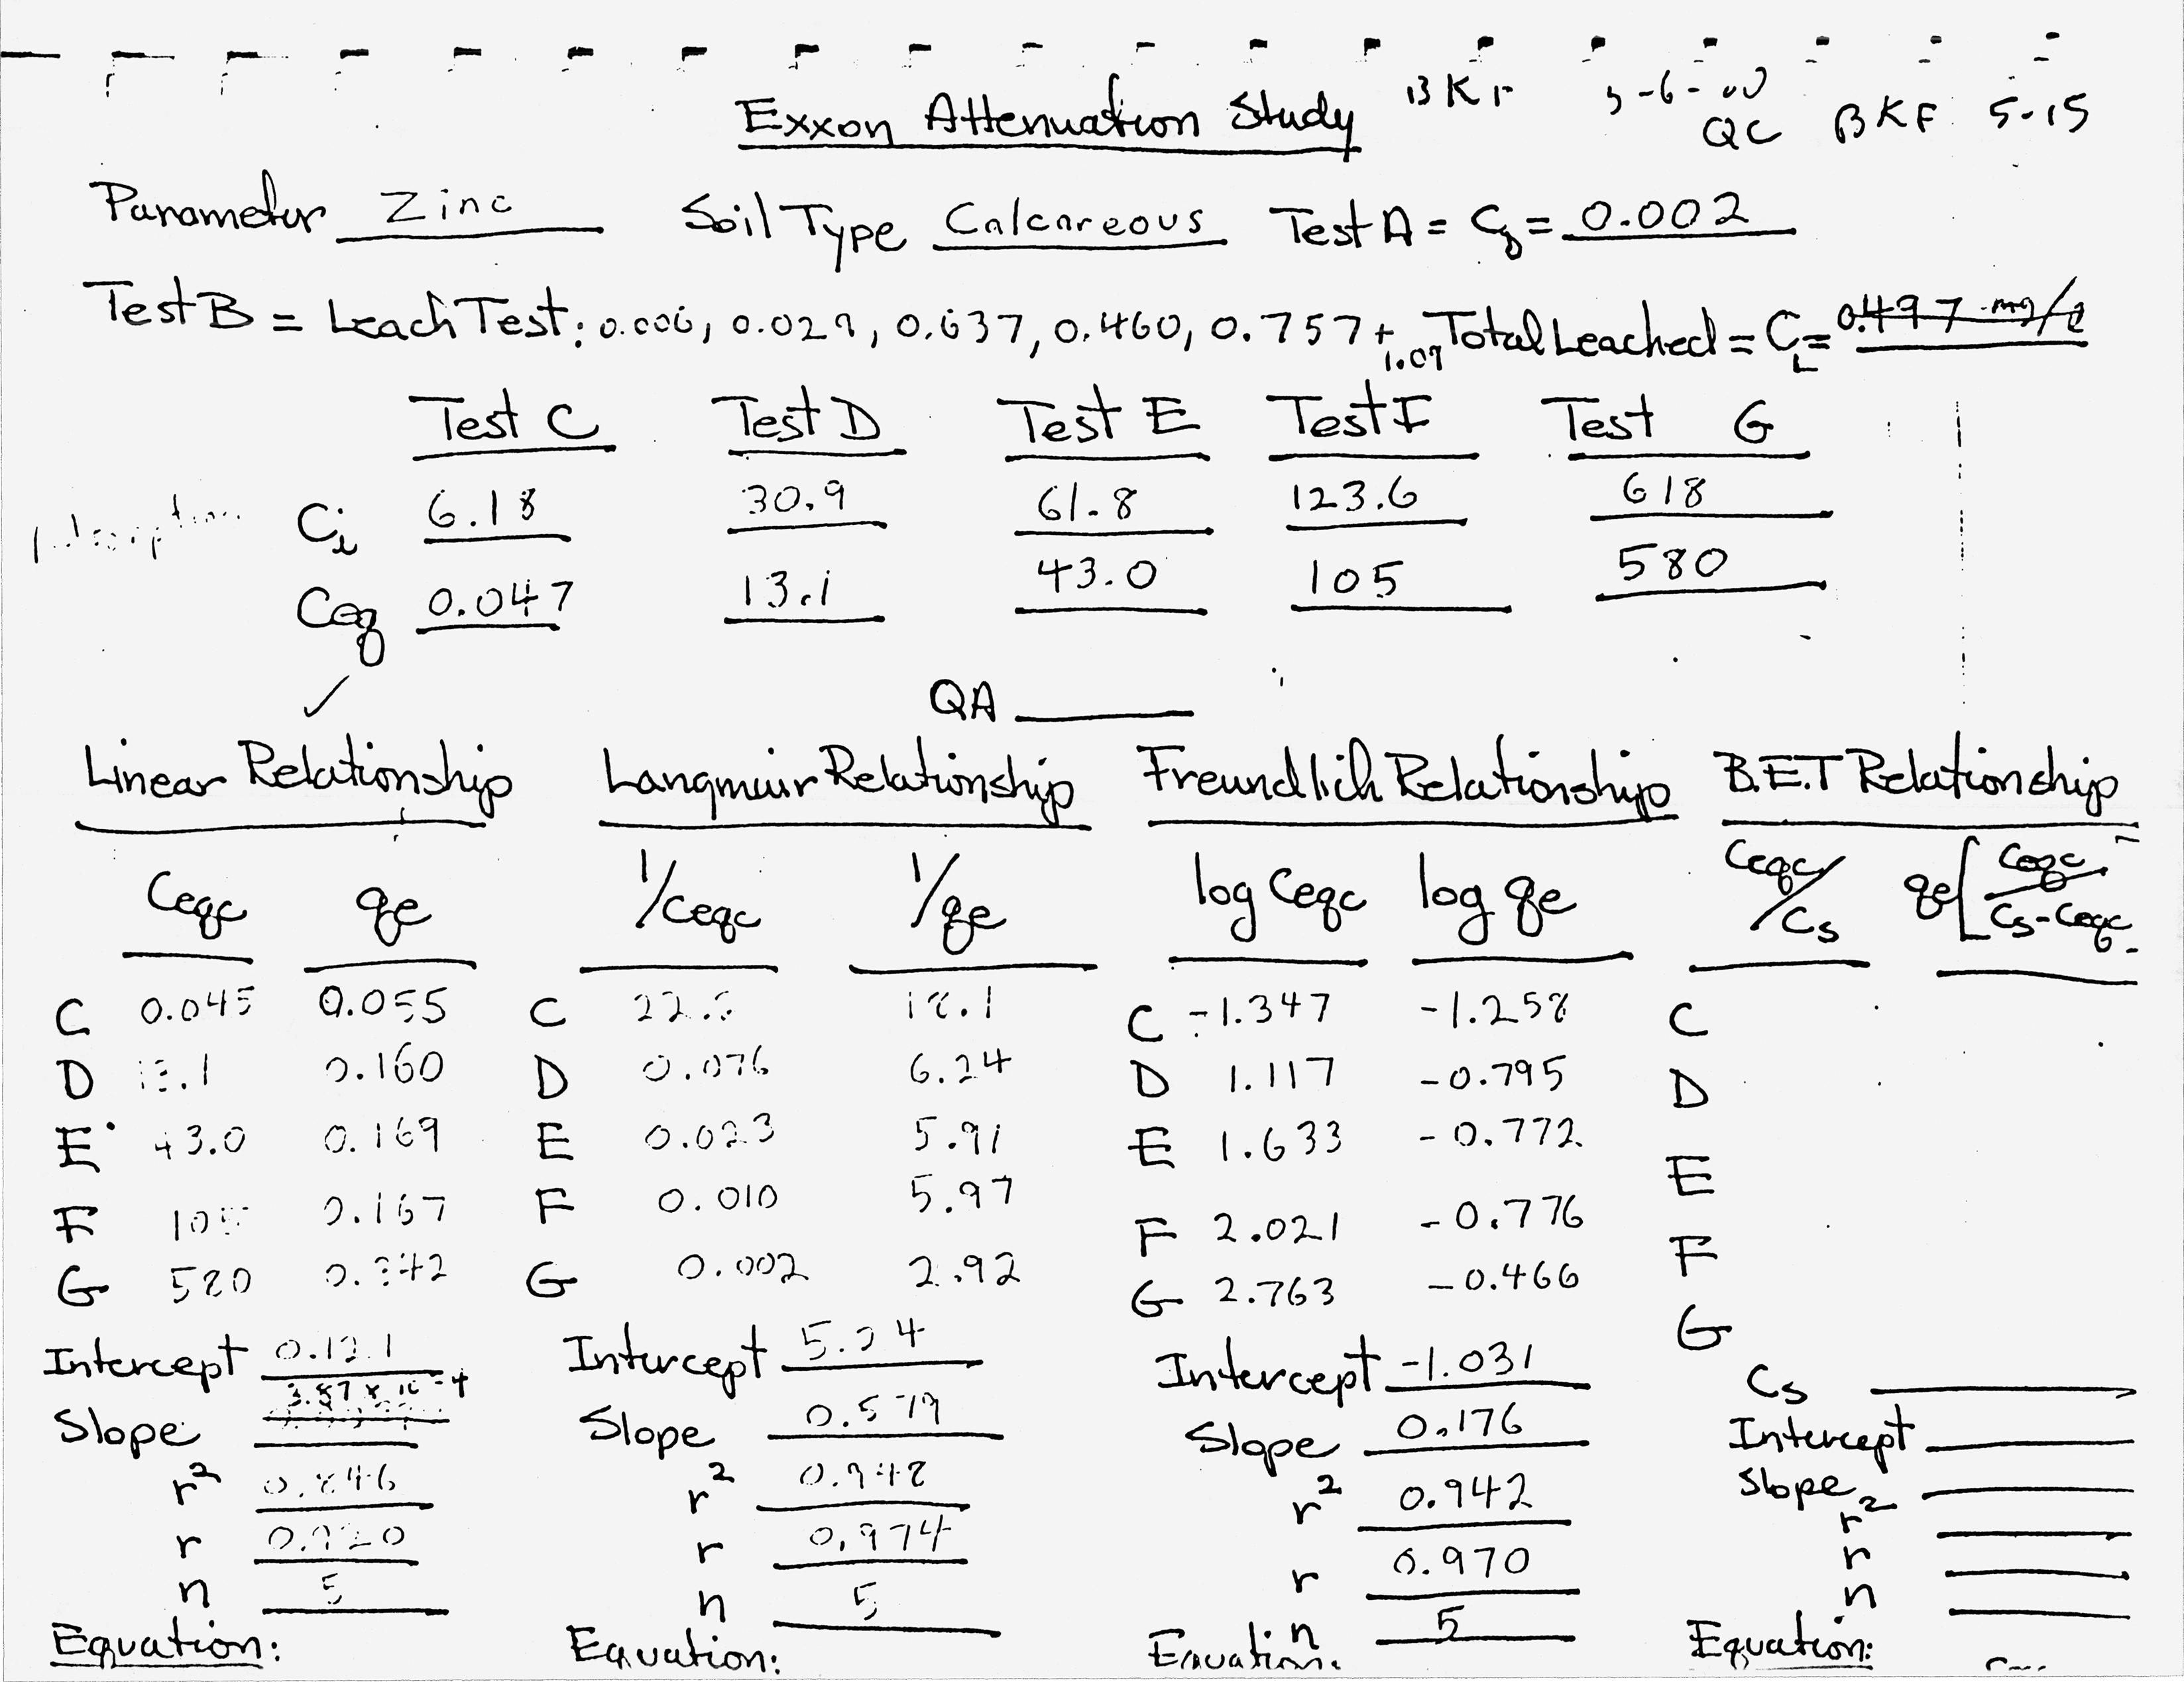 Exxon Attenuation Study
QC BKF 5-15
Parameter Zinc Soil Type Calcareous Test A = C_B = 0.002
Test B = Leach Test: 0.006, 0.029, 0.037, 0.460, 0.757 + 1.09 Total Leached = C_L = 0.497 mg/l
Test C Test D Test E Test F Test G
Ci 6.18 30.9 61.8 123.6 618
Ceq 0.047 13.1 43.0 105 580
QA
Linear Relationship Langmuir Relationship Freundlich Relationship B.E.T Relationship
Ceqc qe 1/Ceqc 1/qe log Ceqc log qe Ceqc/Cs qe[Ceqc/Cs-Ceqc
C 0.045 0.055 C 18.1 C -1.347 -1.258 C
D 13.1 0.160 D 0.076 6.24 D 1.117 -0.795 D
E 43.0 0.169 E 0.023 5.91 E 1.633 -0.772 E
F 105 0.167 F 0.010 5.97 F 2.021 -0.776 F
G 580 0.342 G 0.002 2.92 G 2.763 -0.466 G
Intercept 0.121 Intercept 5.24 Intercept -1.031 Cs
Slope 3.87 x 10-4 Slope 0.579 Slope 0.176 Intercept
r2 0.846 r2 0.948 r2 0.942 Slope
r 0.920 r 0.974 r 0.970 r2
n 5 n 5 n 5 r
n
Equation: Equation: Equation: Equation: